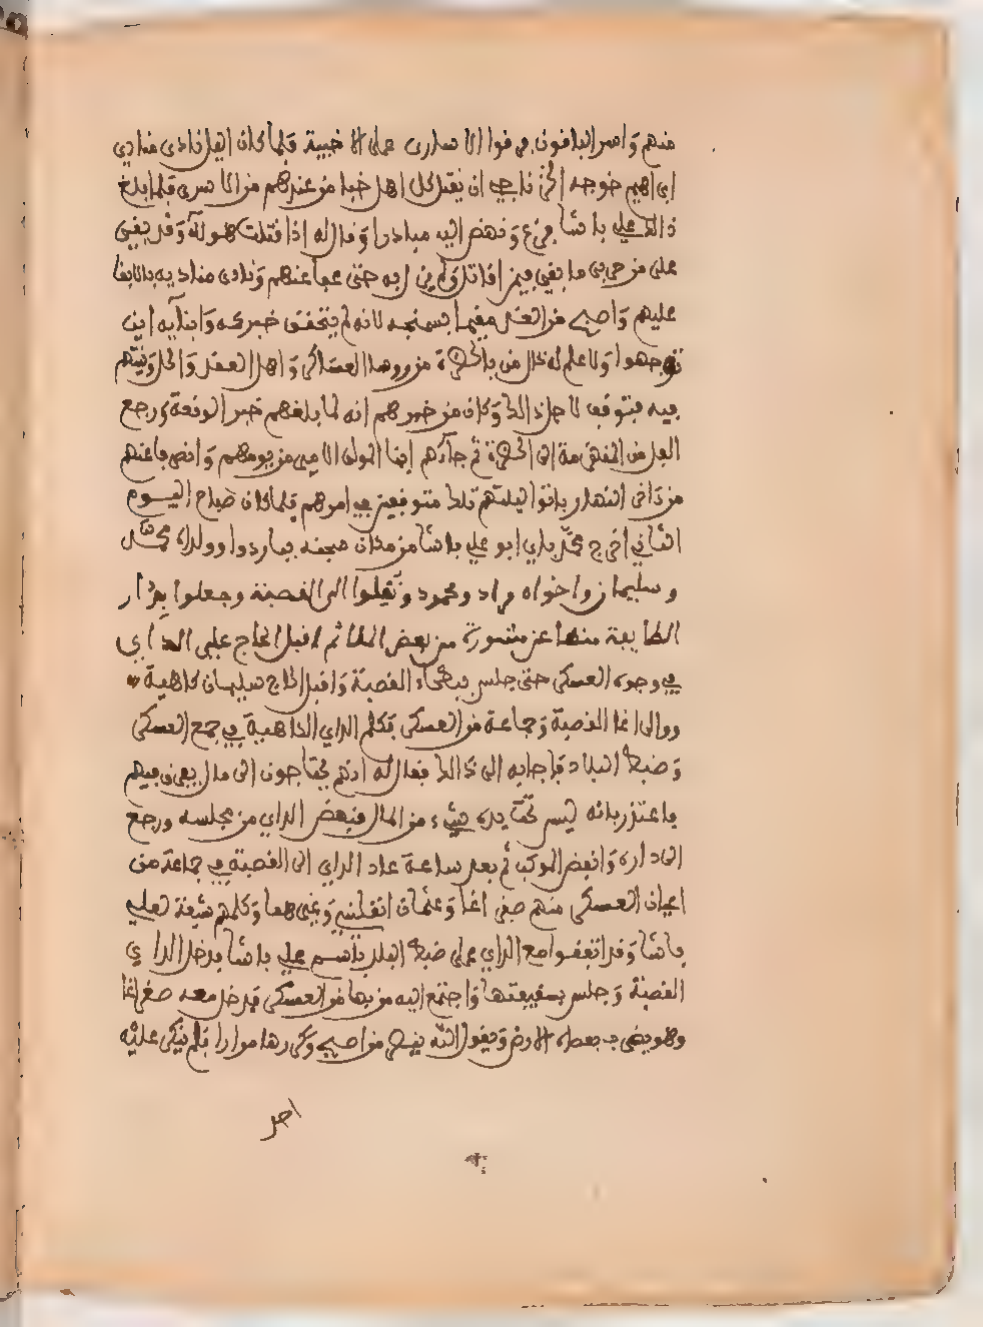 منهم واسر الباقون وفرقوا الاسارى على الاخبية فلما كان الليل نادى منادي
ابراهيم خوجه الخزناجي ان يقتل كل اهل خبا من عندهم من الاسرى فلما بلغ
ذالك علي باشا فزع ونهض اليه مبادرا وقال له اذا قتلت هولاء وقد بقي
على من حربي ما بقي فبمن اقاتل ولم يزل به حتى عفا عنهم ونادى مناديه بالابقا
عليهم واصبح من الغد مقيما بسمنجه لانه لم يتحقق خبر عمه وابنايه اين
توجهوا ولا علم له بحال من بالحضرة من روسا العساكر واهل العقد والحل ونيتهم
فيه فتوقف لاجل ذالك وكان من خبرهم انه لما بلغهم خبر الوقعة ورجع
الفل من المنهزمة الى الحضرة ثم جاءهم ايضا المولى الامير من يومهم وانصرفا عنهم
من ءاخر النهار باتوا ليلتهم تلك متوقفين في امرهم فلما كان صباح اليوم
الثاني اخرج محمد باي ابو علي باشا من مكان سجنه بباردوا وولداه محمد
وسليمان واخواه مراد ومحمود ونقلوا الى القصبة وجعلوا بدار
الطايفة منها عن مشورة من بعض الملا ثم اقبل الحاج علي الداي
في وجوه العسكر حتى جلس ببطحاء القصبة واقبل الحاج سليمان كاهية
ووالى اغا القصبة وجماعة من العسكر فكلم الداي الكاهية في جمع العسكر
وضبط البلاد فاجابه الى ذالك فقال له انهم يحتاجون الى مال يفرق فيهم
فاعتذر بانه ليس تحت يده شيء من المال فنهض الداي من مجلسه ورجع
الى داره وانفض الموكب ثم بعد ساعة عاد الداي الى القصبة في جماعة من
اعيان العسكر منهم صفر اغا وعثمان انقليز وغيرهما وكلهم شيعة لعلي
باشا وقد اتفقوا مع الداي على ضبط البلد باسم علي باشا فدخل الداي
القصبة وجلس بسقيفتها واجتمع اليه من بها من العسكر فدخل معه صفر اغا
وهو يضرب بعصاه الارض ويقول الله ينصر من اصبح وكررها مرارا فلم ينكر عليه
احد